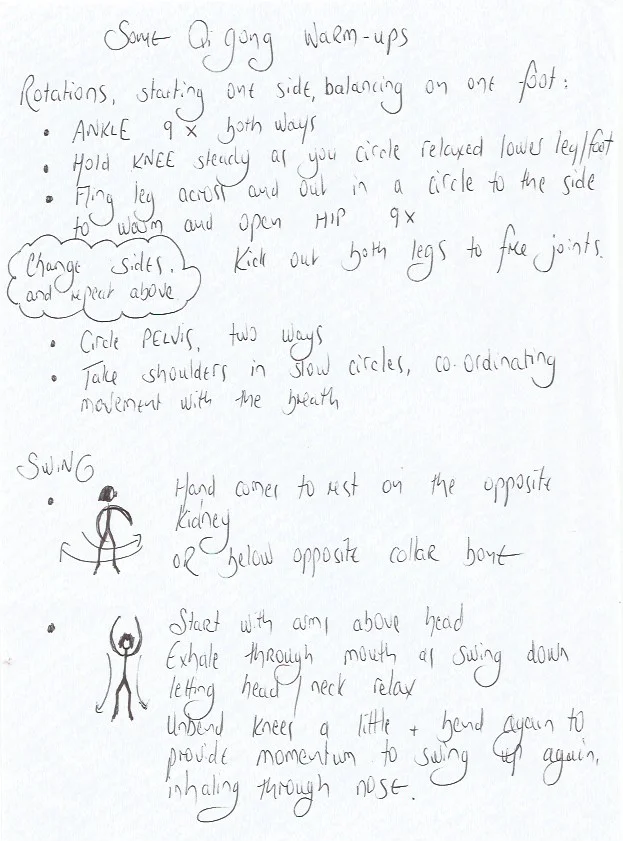 Some Qi gong Warm-ups
Rotations, starting one side, balancing on one foot:
• ANKLE 9 x both ways
• Hold KNEE steady as you circle relaxed lower leg/foot
• Fling leg across and out in a circle to the side
to warm and open HIP 9x
Change sides,
and repeat above
Kick out both legs to free joints.
• Circle PELVIS, two ways
• Take shoulders in slow circles, co-ordinating
movement with the breath
SWING
• Hand comes to rest on the opposite
Kidney
OR below opposite collar bone
• Start with arms above head
Exhale through mouth as swing down
letting head/neck relax
Unbend knees a little + bend again to
provide momentum to swing up again,
inhaling through nose.